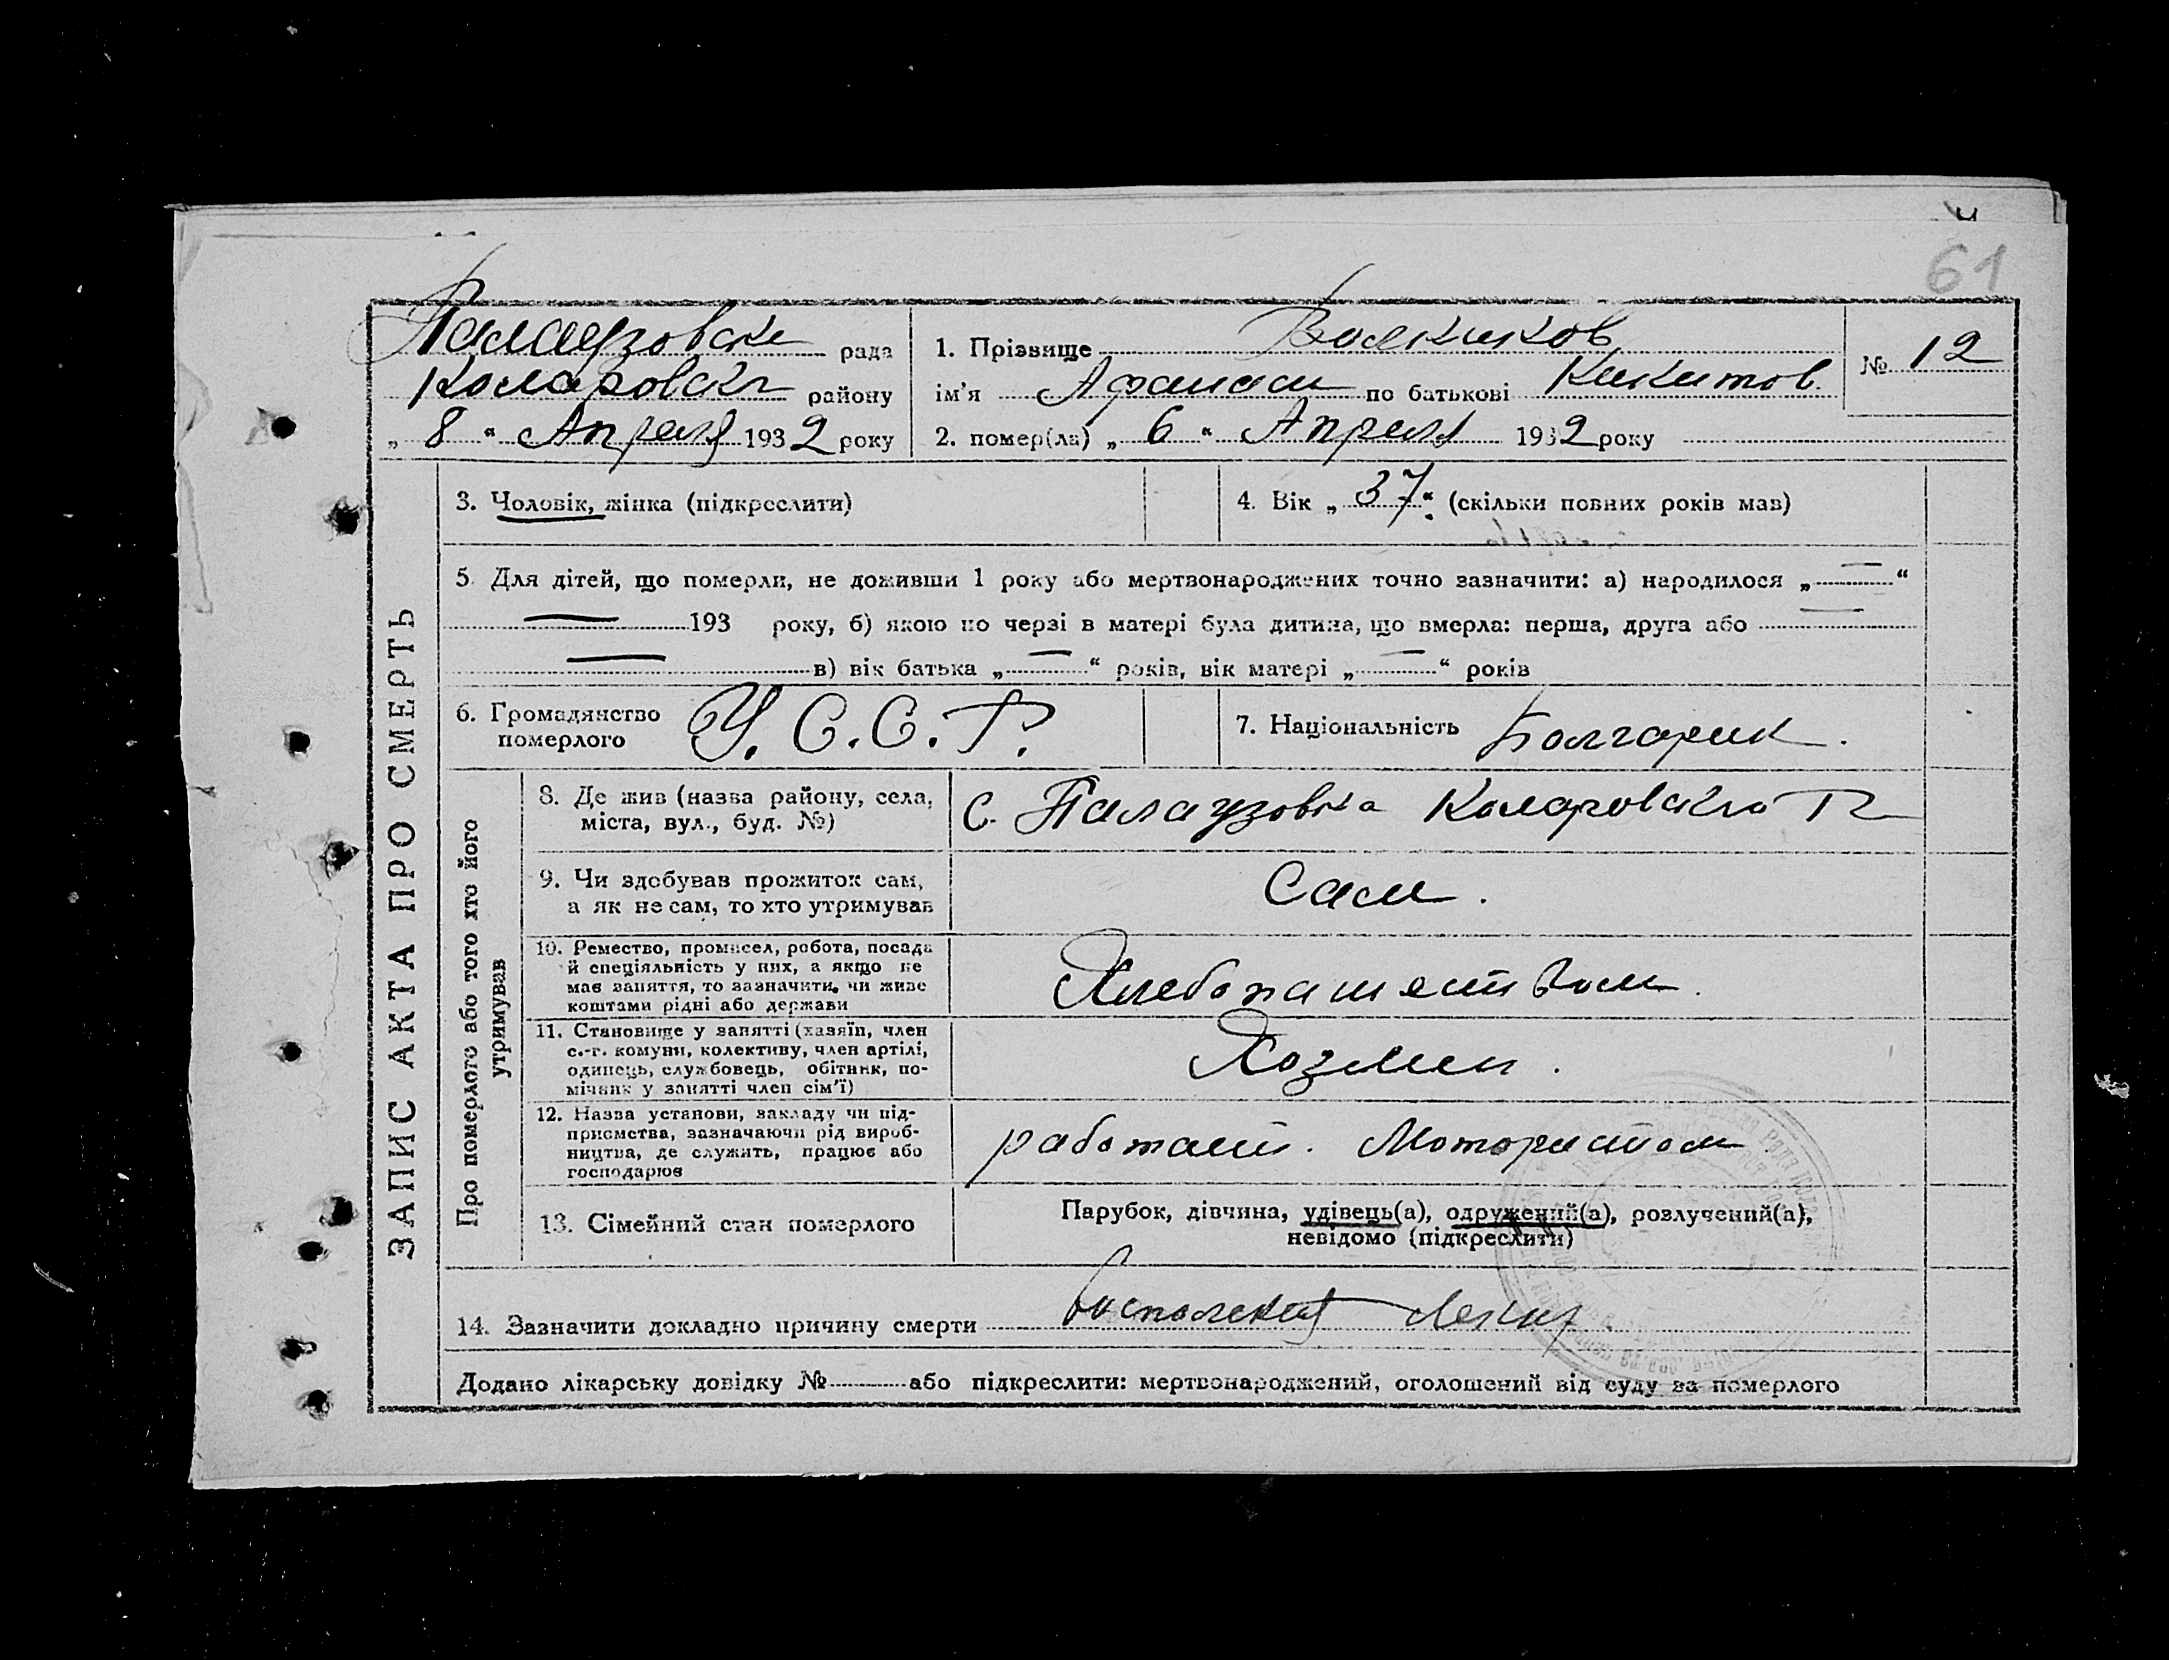 61
Палаузовска рада
Коларовска району
„ 8 “ Апреля 1932 року
1. Прізвище Волкиков
ім'я Афанаси по батькові Никитов.
2. помер(ла) „ 6 “ Апреля 1932 року
№ 12
ЗАПИС АКТА ПРО СМЕРТЬ
3. Чоловік, жінка (підкреслити)
4. Вік „ 37 “ (скільки повних років мав)
5. Для дітей, що померли, не доживши 1 року або мертвонароджених точно зазначити: а) народилося „ — “
— 193 року, б) якою по черзі в матері була дитина, що вмерла: перша, друга або —
— в) вік батька „ — “ років, вік матері „ — “ років
6. Громадянство
померлого У.С.С.Р.
7. Національність Болгарин.
Про померлого або того хто його
утримував
8. Де жив (назва району, села,
міста, вул., буд. №)
с. Палаузовка Коларовского Р
9. Чи здобував прожиток сам,
а як не сам, то хто утримував
Сам.
10. Ремество, промисел, робота, посада
й спеціяльність у них, а якщо не
має заняття, то зазначити, чи живе
коштами рідні або держави
Хлебопашеством.
11. Становище у занятті (хазяїн, член
с.-г. комуни, колективу, член артілі,
одинець, службовець, обітник, по-
мічник у занятті член сім'ї)
Хозяин.
12. Назва установи, закладу чи під-
приємства, зазначаючи рід вироб-
ництва, де служить, працює або
господарює
работает. Мотористом
13. Сімейний стан померлого
Парубок, дівчина, удівець(а), одружений(а), розлучений(а),
невідомо (підкреслити)
14. Зазначити докладно причину смерти Воспаления Легких
Додано лікарську довідку № або підкреслити: мертвонароджений, оголошений від суду за померлого